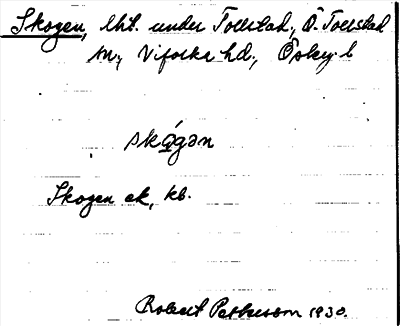 Skogen, lht. under Tollstad, Ö. Tollstad
sn, Vifolka hd., Östg. l
skógən
Skogen ek, kb.
Robert Pettersson 1930.